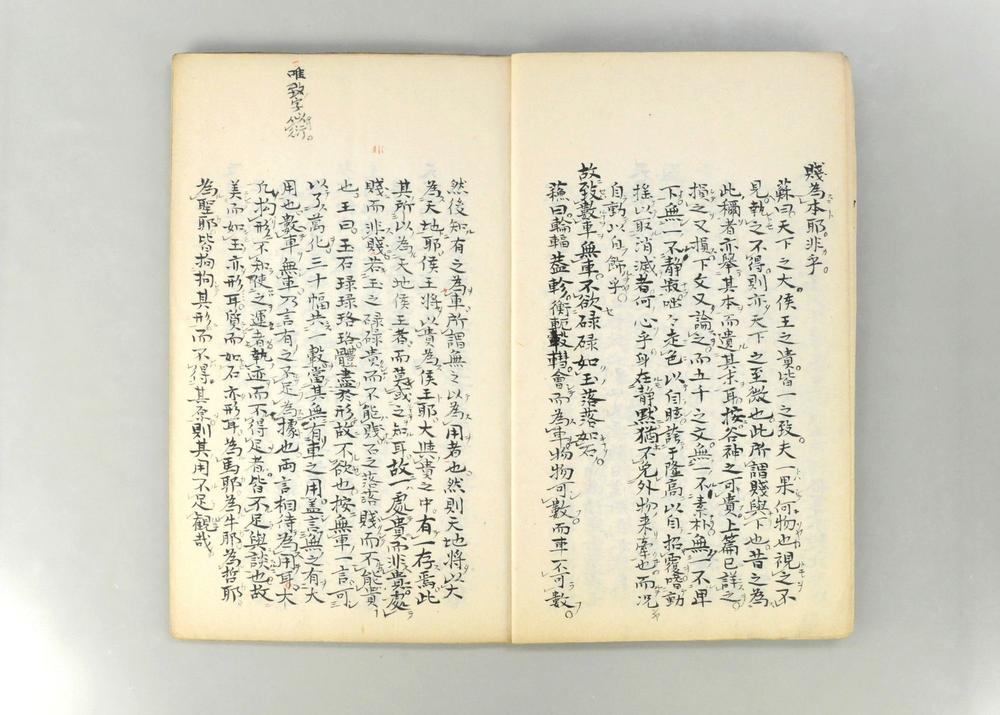 賤為本耶非乎
蘇曰天下之大侯王之貴皆一之致夫一果何物也視之不
見執之不得則亦天下之至微也此所謂賤與下也昔之為
此稱者亦舉其本而遺其末耳按谷神之可貴上篇已詳之
損之又損下文又論之而五千之文無一不素朴無一不卑
下無一不静寂唯々走色以自眩誇于隆高以自招覆嗜動
揺以取消滅者何心乎身在静黙猶不免外物来牽也而况
自動以自飾乎
故致數車無車不欲碌碌如玉落落如石
蘇曰輪輻蓋軫衡軛轂轊會而為車物物可數而車不可數
然後知有之為車所謂無之以為用者也然則天地将以大
為天地耶侯王将以貴為侯王耶大與貴之中有一存焉此
其所以為天地侯王者而莫或之知耳故一處貴而非貴處
賤而非賤若玉之碌碌貴而不能賤石之落落賤而不能貴
也王曰玉石琭琭珞珞體盡於形故不欲也按無車一言可
以了萬化三十幅共一轂當其無有車之用蓋言無之有大
用也數車無車乃言有之不足為據也両言相待為用耳大
凢拘形不知使之運者執迹而不得足者皆不足與談也故
美而如玉亦形耳質而如石亦形耳為馬耶為牛耶為哲耶
為聖耶皆拘拘其形而不得其原則其用不足觀哉
唯致字似衍